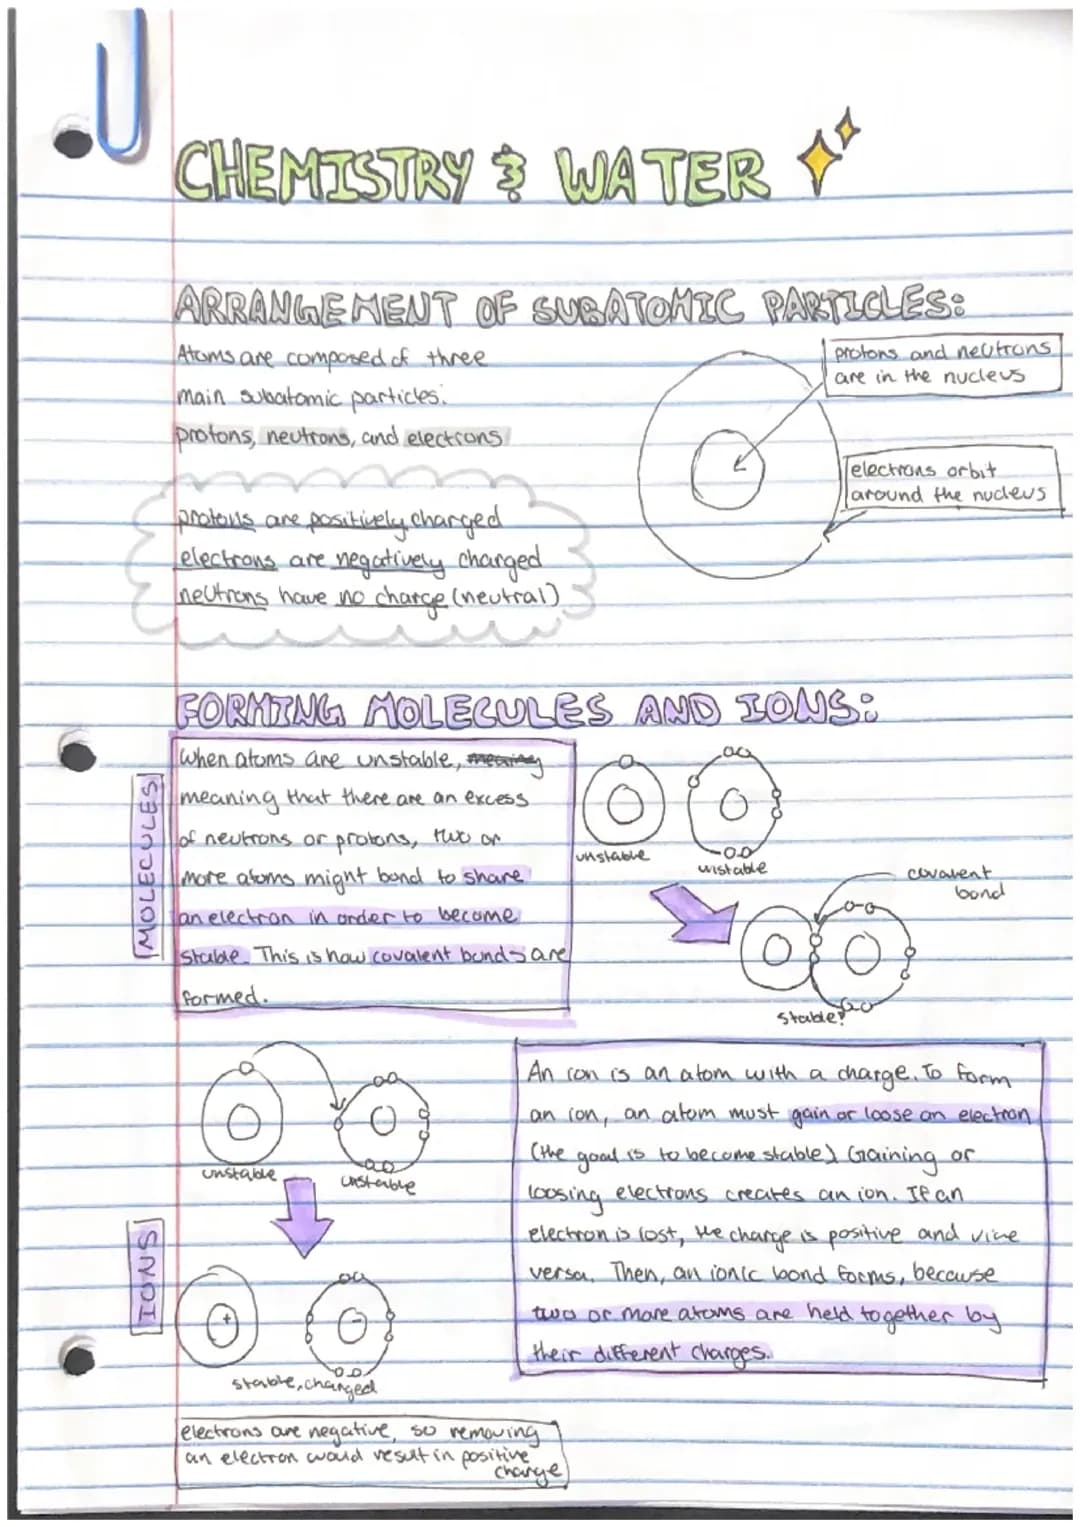 CHEMISTRY & WATER
ARRANGEMENT OF SUBATOMIC PARTICLES:
Atoms are composed of three
main subatomic particles:
protons, neutrons, and electrons
protons and neutrons
are in the nucleus
electrons orbit
around the nucleus
protons are positively charged
electrons are negatively charged
neutrons have no charge (neutral)
FORMING MOLECULES AND IONS:
MOLECULES
When atoms are unstable, meaning
meaning that there are an excess
of neutrons or protons, two or
more atoms might bond to share
an electron in order to become
stable. This is how covalent bonds are
formed.
unstable
unstable
covalent
bond
stable!
unstable
unstable
IONS
+
-
stable, charged
An ion is an atom with a charge. To form
an ion, an atom must gain or loose an electron
(the goal is to become stable) Gaining or
loosing electrons creates an ion. If an
electron is lost, the charge is positive and vice
versa. Then, an ionic bond forms, because
two or more atoms are held together by
their different charges.
electrons are negative, so removing
an electron would result in positive
charge